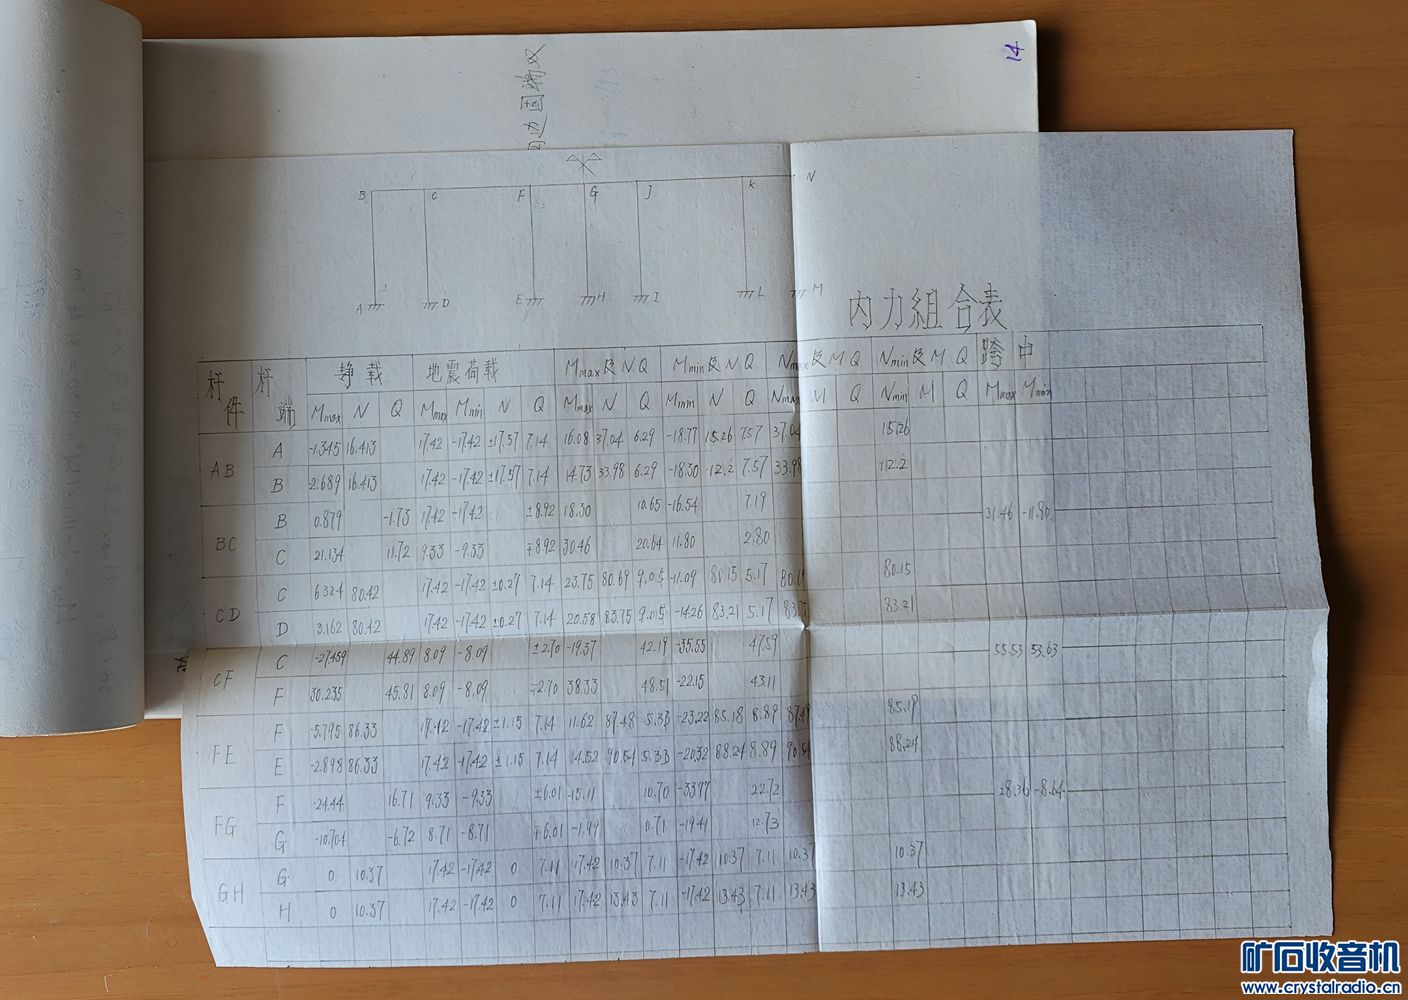 14
的边固端双
B C F G J K N
A D E H I L M
内力组合表
杆件 杆端 静载 地震荷载 Mmax及NQ Mmin及NQ Nmax及MQ Nmin及MQ 跨中
Mmax N Q Mmax Mmin N Q Mmax N Q Mmin N Q Nmax M Q Nmin M Q Mmax Mmin
AB A -1.345 16.413 17.42 -17.42 ±17.57 7.14 16.08 37.04 6.29 -18.77 15.26 7.57 37.04 15.26
B -2.689 16.413 17.42 -17.42 ±17.57 7.14 14.73 33.98 6.29 -18.30 -12.2 7.57 33.98 -12.2
BC B 0.879 -1.73 17.42 -17.42 ±8.92 18.30 10.65 -16.54 7.19 31.46 -11.80
C 21.134 11.72 9.33 -9.33 ∓8.92 30.46 20.64 11.80 2.80
CD C 6.324 80.42 17.42 -17.42 ±0.27 7.14 23.75 80.69 9.05 -11.09 80.15 5.17 80.15
D 3.162 80.42 17.42 -17.42 ±0.27 7.14 20.58 83.75 9.05 -14.26 83.21 5.17 83.21
CF C -27.459 44.89 8.09 -8.09 ±2.70 -19.37 42.19 -35.55 47.59 55.53 53.63
F 30.235 45.81 8.09 -8.09 ∓2.70 38.33 48.51 -22.15 43.11
FE F -5.795 86.33 17.42 -17.42 ±1.15 7.14 11.62 87.48 5.33 -23.22 85.18 8.89 87.48 85.19
E -2.898 86.33 17.42 -17.42 ±1.15 7.14 14.52 90.54 5.33 -20.32 88.24 8.89 90.54 88.24
FG F -24.44 16.71 9.33 -9.33 ±6.01 -15.11 10.70 -33.77 22.72 28.36 -8.64
G -10.704 -6.72 8.71 -8.71 ∓6.01 -1.99 0.71 -19.41 12.73
GH G 0 10.37 17.42 -17.42 0 7.11 17.42 10.37 7.11 -17.42 10.37 7.11 10.37 10.37
H 0 10.37 17.42 -17.42 0 7.11 17.42 13.43 7.11 -17.42 13.43 7.11 13.43 13.43
矿石收音机
www.crystalradio.cn